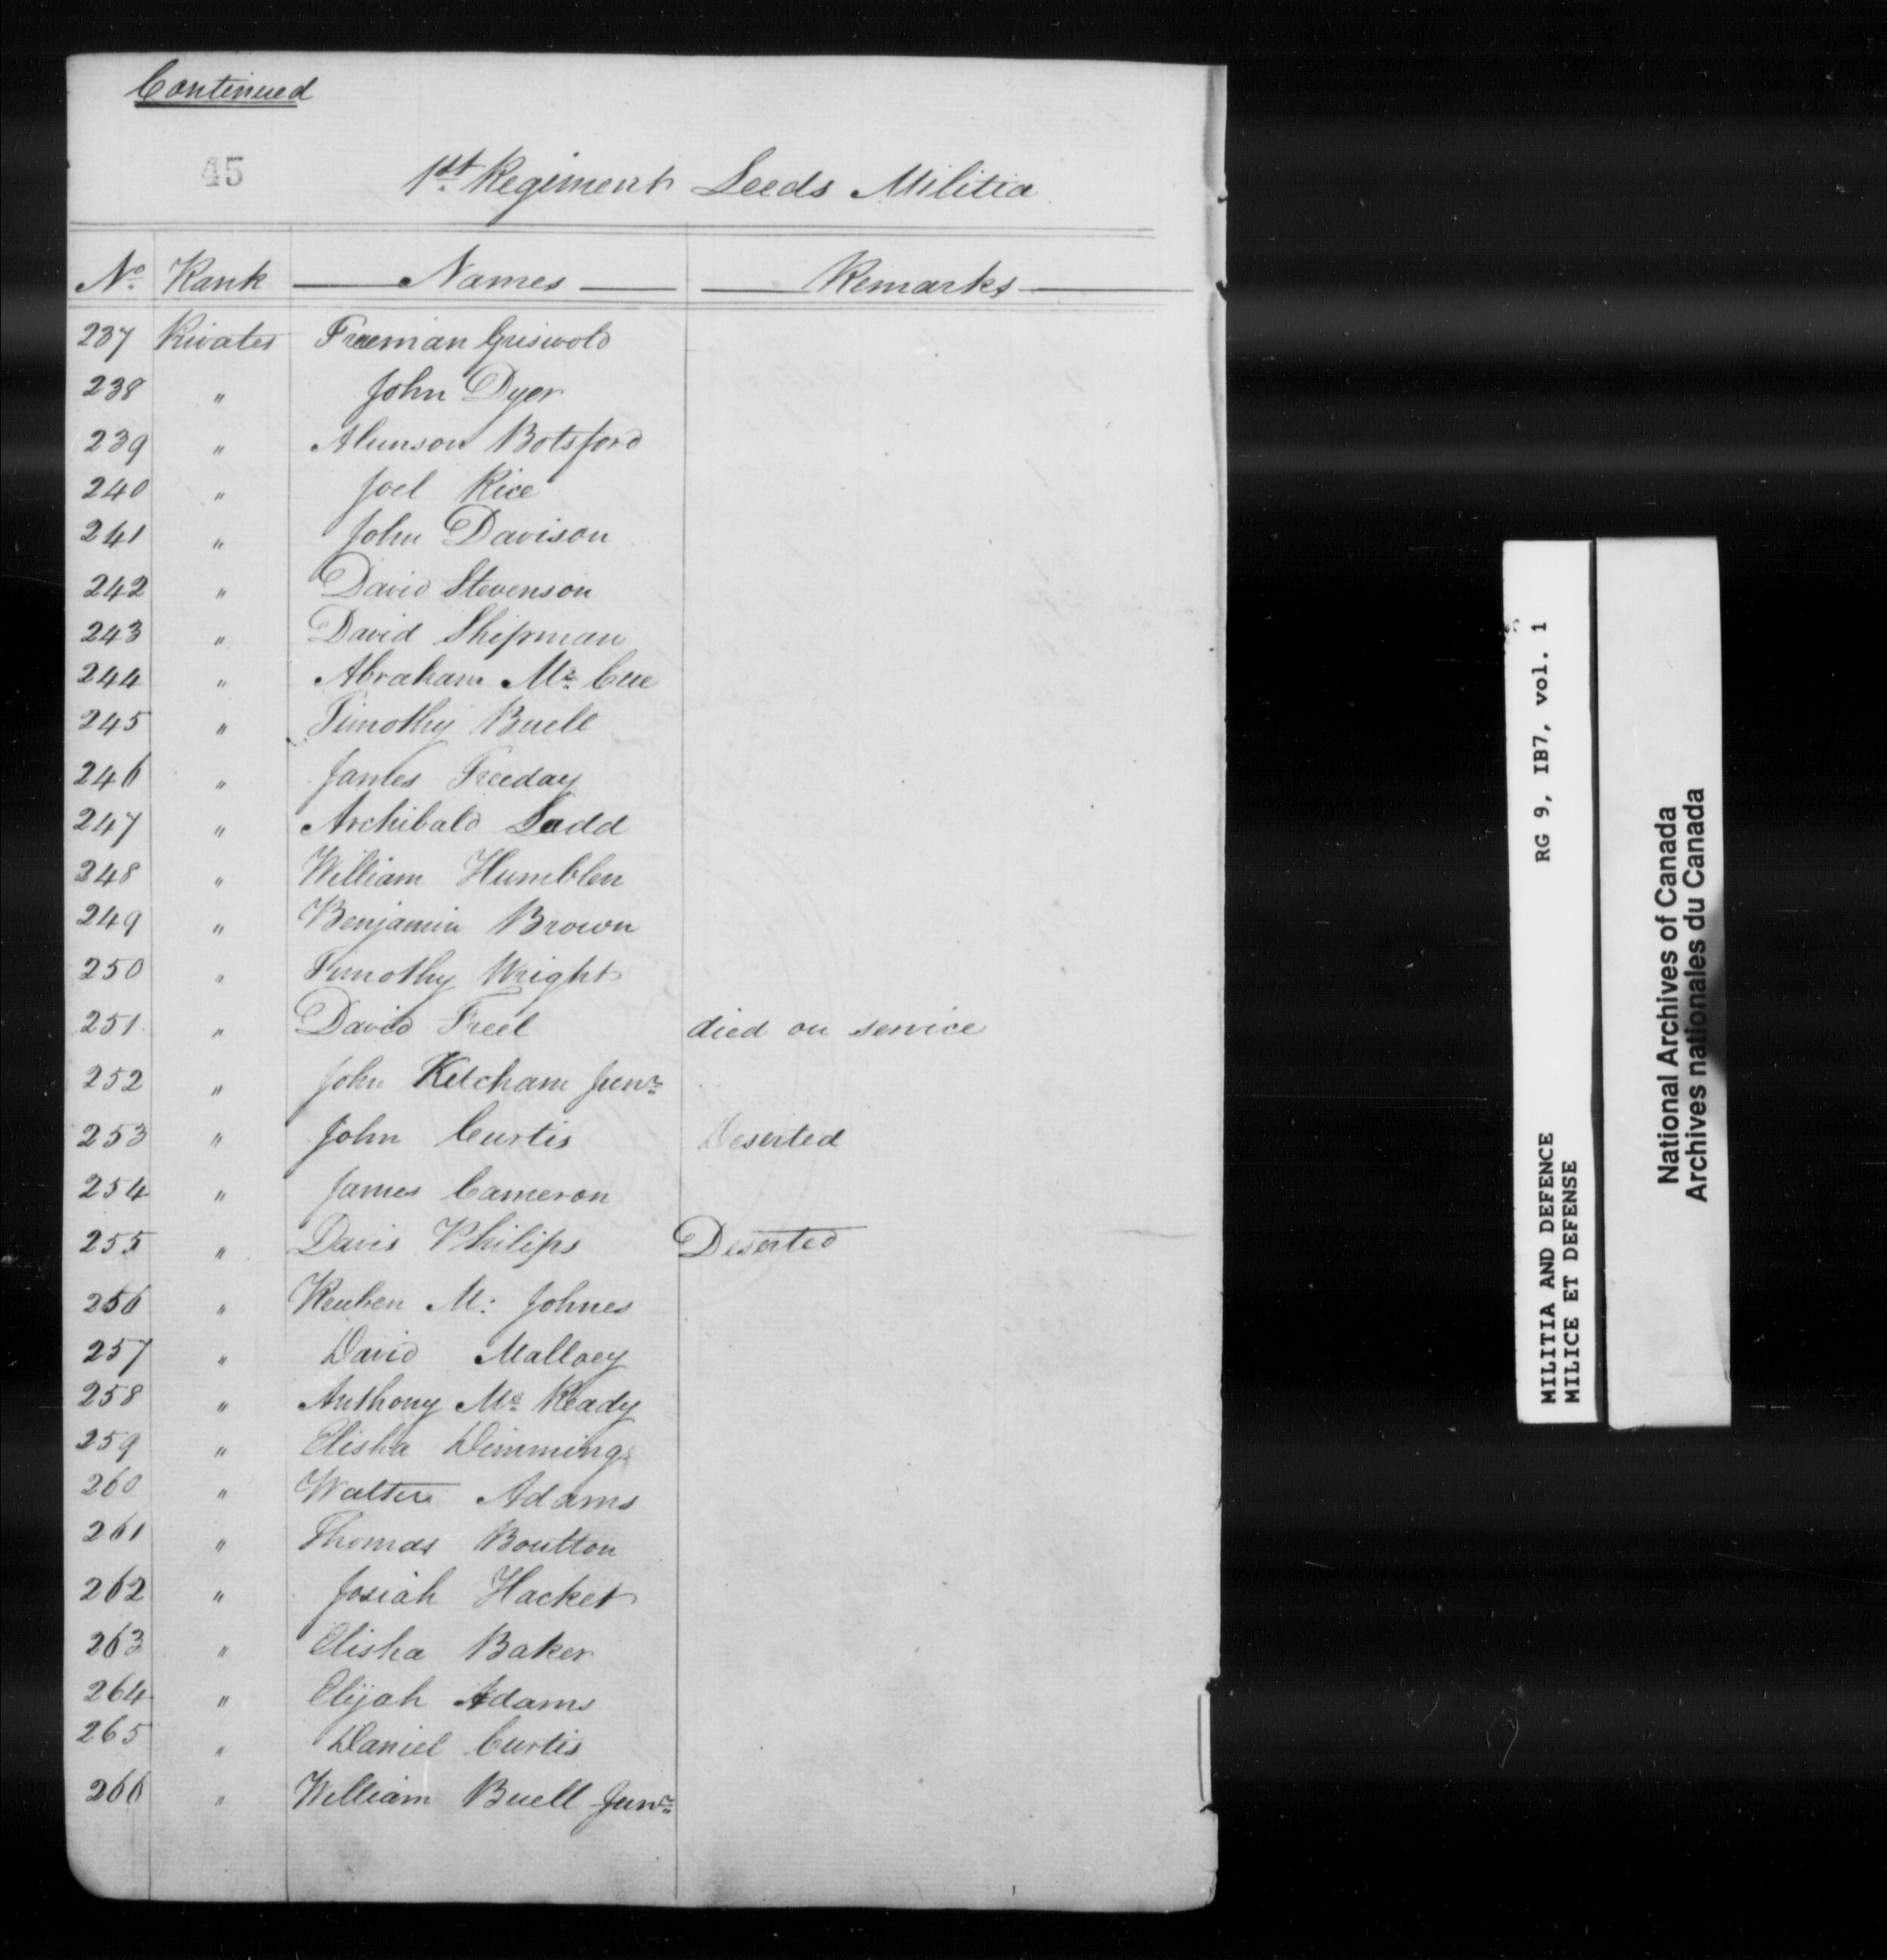 Continued
45
1st Regiment Leeds Militia
No Rank Names Remarks
237 Privates Freeman Griswold
238 " John Dyer
239 " Alunson Botsford
240 " Joel Rice
241 " John Davison
242 " David Stevenson
243 " David Shipman
244 " Abraham Mc Cue
245 " Timothy Buell
246 " James Freeday
247 " Archibald Ladd
248 " William Humblen
249 " Benjamin Brown
250 " Timothy Wright
251 " David Freel died on service
252 " John Ketcham Junr
253 " John Curtis Deserted
254 " James Cameron
255 " Davis Philips Deserted
256 " Reuben M: Johnes
257 " David Malloey
258 " Anthony Mc Ready
259 " Elisha Dimmings
260 " Walter Adams
261 " Thomas Boulton
262 " Josiah Hacket
263 " Elisha Baker
264 " Elijah Adams
265 " Daniel Curtis
266 " William Buell Junr
MILITIA AND DEFENCE RG 9, IB7, vol. 1
MILICE ET DEFENSE
National Archives of Canada
Archives nationales du Canada